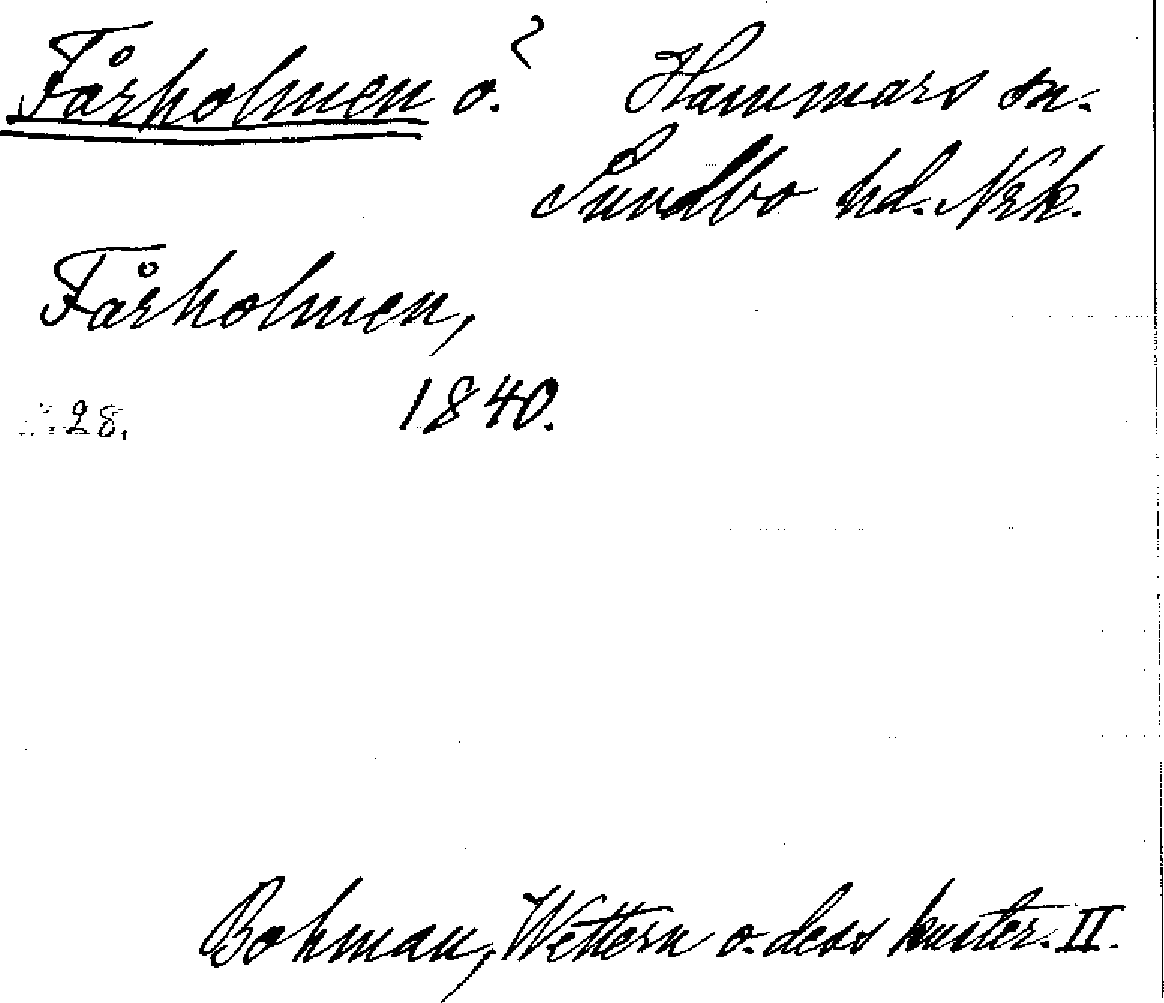 Fårholmen ö.? Hammars sn.
Sundbo hd. Nrk.
Fårholmen,
28. 1840.
Bohman, Wettern o. dess kuster. II.